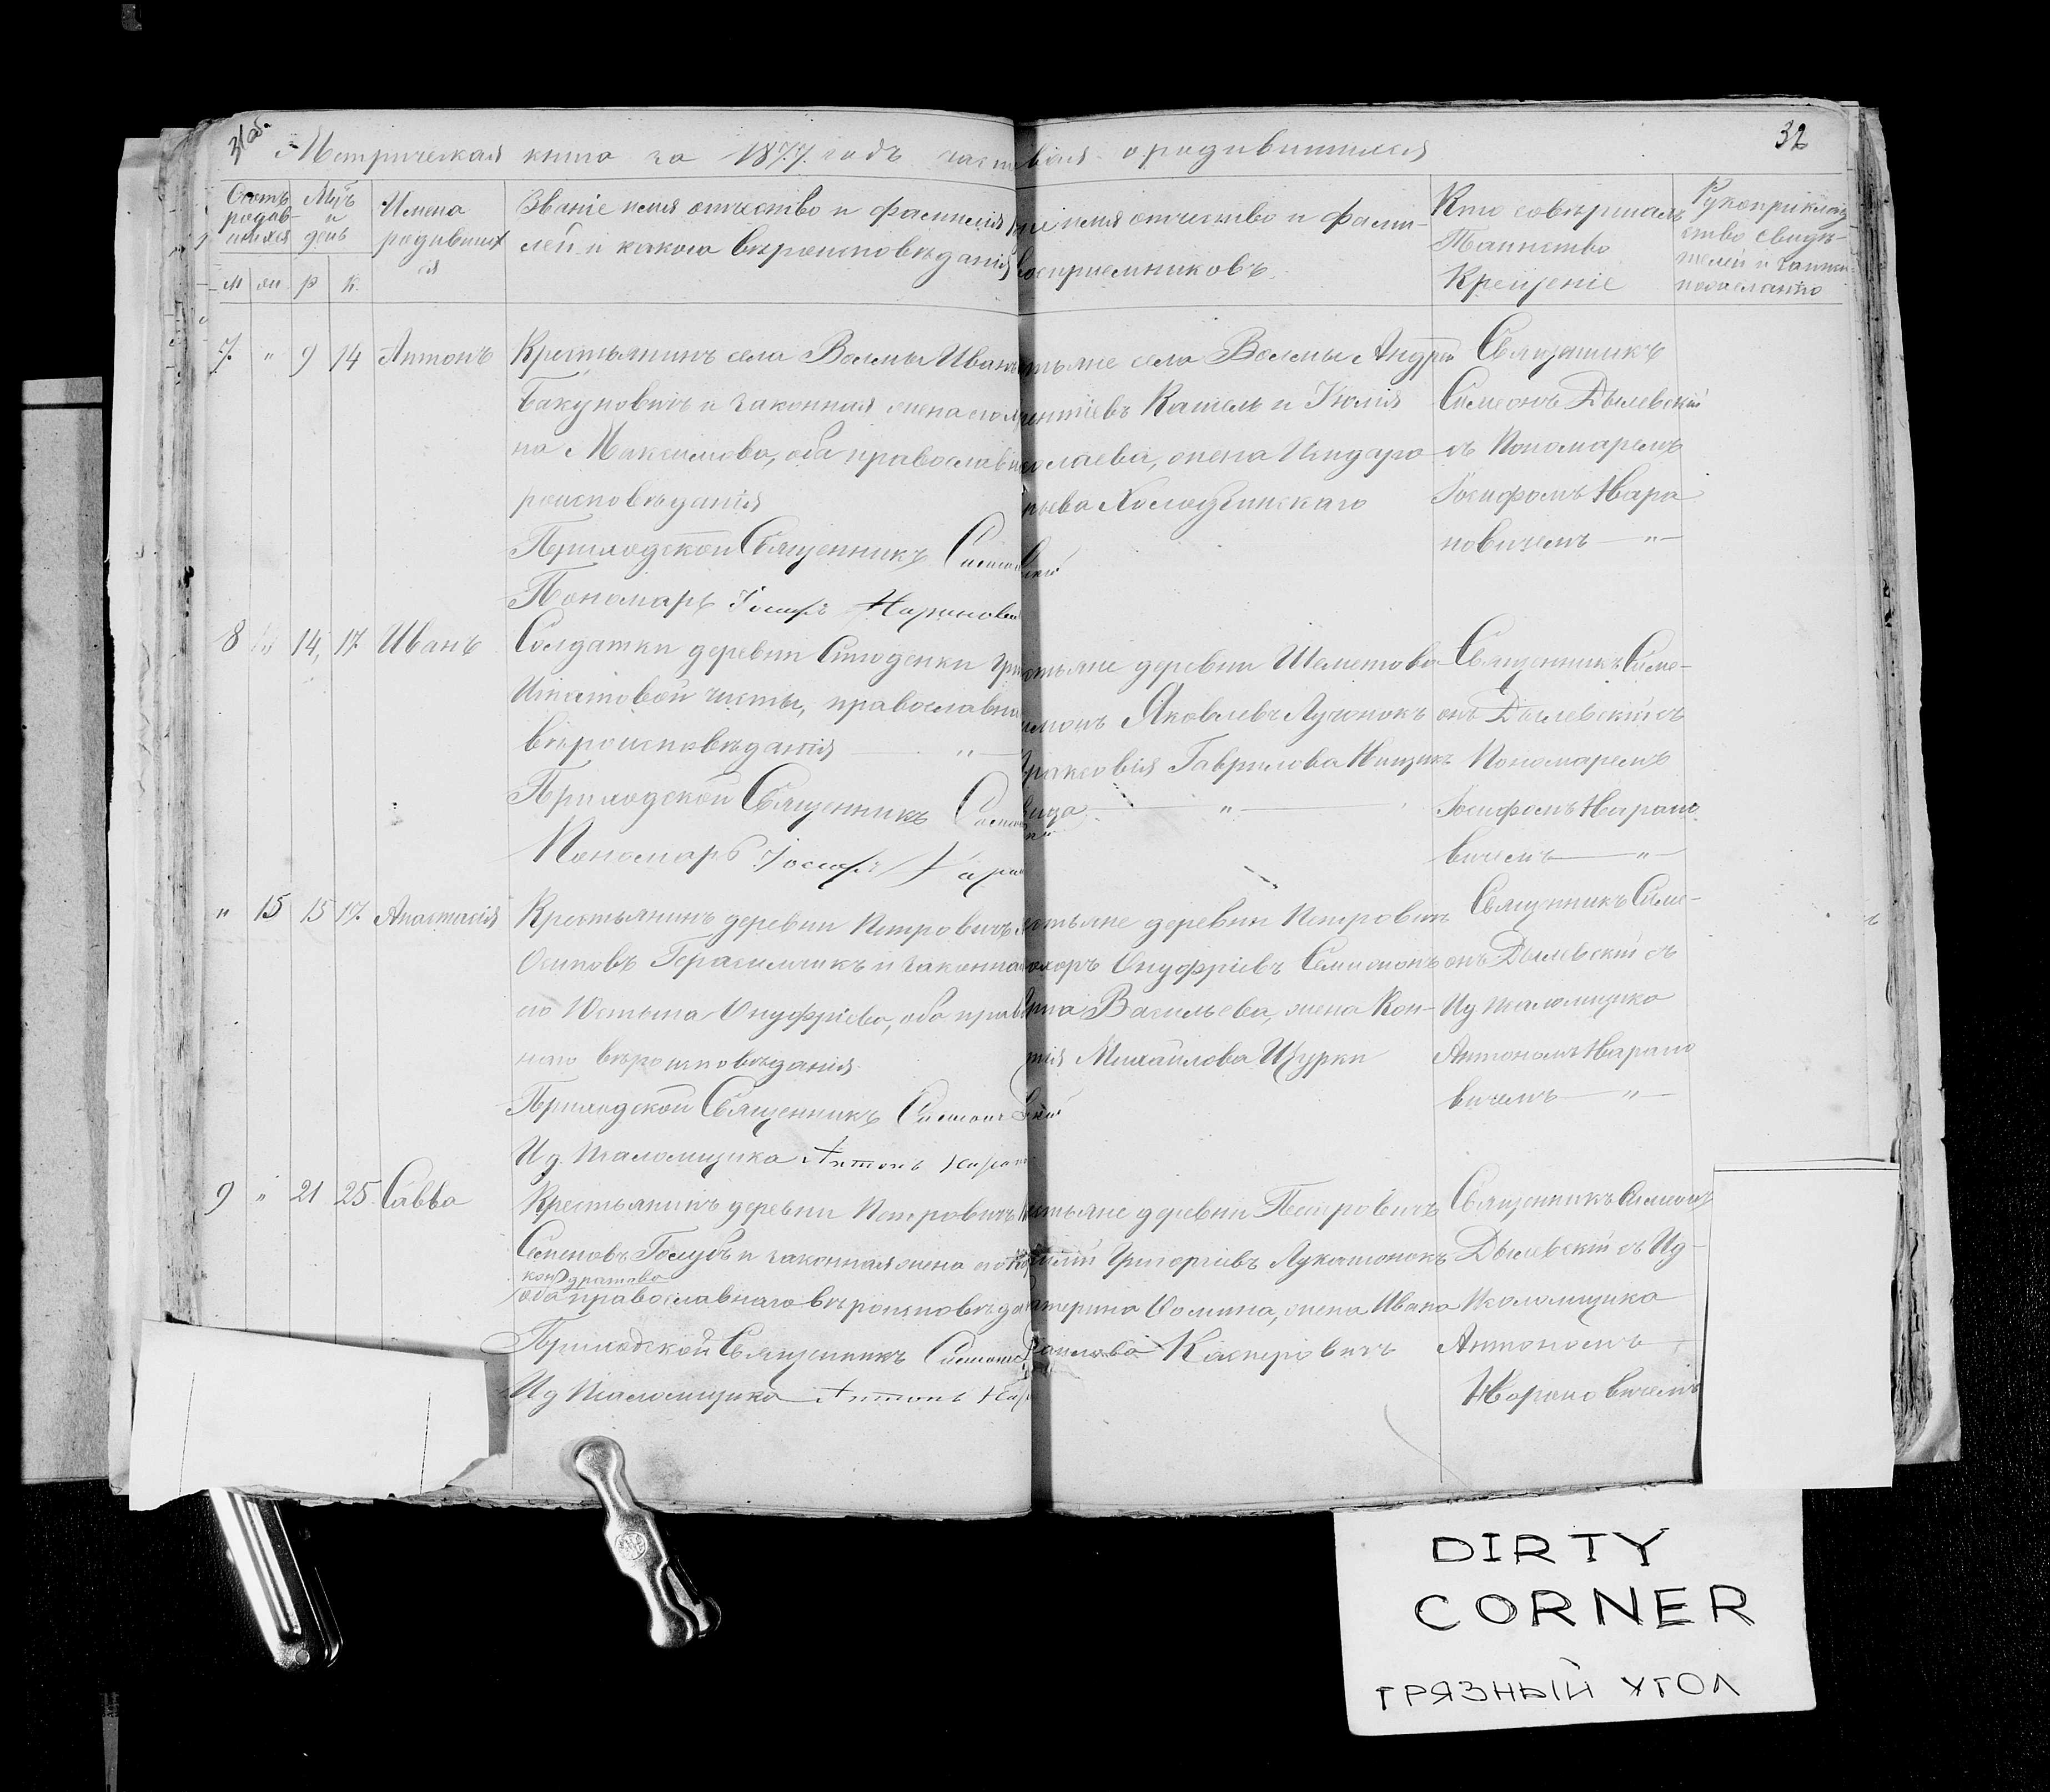 31об.
32
Метрическая книга за 1877 годъ часть первая о родившихся
Счетъ родив-шихся
Мѣс. и день
Имена родившихся
Званіе имя отчество и фамилія
лей и какого вѣроисповѣданія
имя отчество и фами-
восприемниковъ.
Кто совершалъ
Таинство
Крещеніе
Рукоприклад
ство свидѣ-
телей
м ж р к.
7. " 9 14 Антонъ
Крестьянинъ села Волмы Иванъ
Бакуновичъ и законная жена его
на Максимова, оба православн
роисповѣданія
Приходской Священникъ Симеонъ
Пономарь Іосифъ Наранови
тьяне села Волмы Андрей
ентіевъ Кашель и Юлія
колаева, жена
Священникъ
Симеонъ Дылевскій
съ Пономаремъ
Іосифомъ Нара
новичемъ — " —
8 " 14, 17. Иванъ
Солдатки деревни Студенки
православна
вѣроисповѣданія — " —
Приходской Священникъ
Пономарь Іосифъ Нара
стьяне деревни Шеметова
Яковлевъ Лучонокъ
раксовія Гаврилова
вича — " —
Священникъ Симе-
онъ Дылевскій съ
Пономаремъ
Іосифомъ Нарано
вичемъ — " —
" 15 15 17. Анастасія
Крестьянинъ деревни Петровичъ
Осиповъ Герасимчикъ и законна
го Устына Онуфріева, оба прав
наго вѣроисповѣданія
Приходской Священникъ Симеонъ
И д. Псаломщика Антонъ Наран
стьяне деревни Петровичъ
Онуфріевъ Семисюкъ
Васильева, жена Кон-
тія Михайлова Щурки
Священникъ Симе-
онъ Дылевскій съ
И д Псаломщика
Антономъ Нарано
вичемъ — " —
9 " 21 25 Савва
Крестьянинъ деревни Петровичъ
Семеновъ Голубъ и законная жена его
кондратова
оба православнаго вѣроисповѣда
Приходской Священникъ Симеонъ
И д Псаломщика Антонъ Нар
стьяне деревни Петровичъ
Григоріевъ Лукашонокъ
атерина Фомина, жена Ивана
Касперовичъ
Священникъ Симеонъ
Дылевскій съ И д-
Псаломщика
Антономъ —
Нарановичемъ
DIRTY
CORNER
ГРЯЗНЫЙ УГОЛ